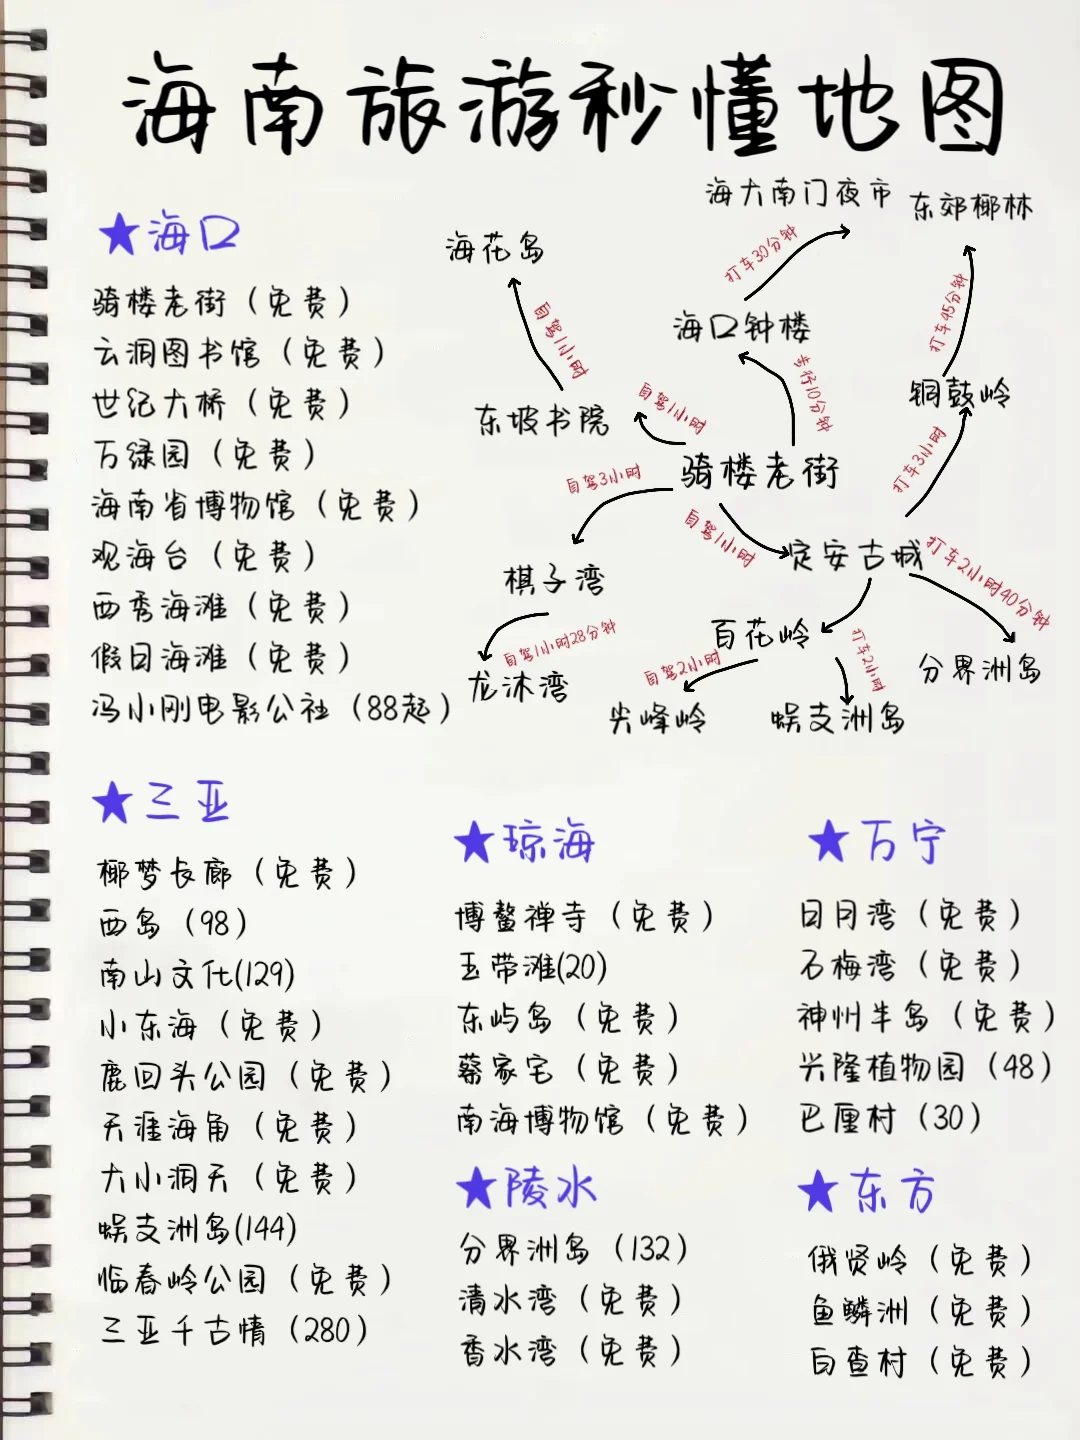 海南旅游秒懂地图
★海口
骑楼老街（免费）
云洞图书馆（免费）
世纪大桥（免费）
万绿园（免费）
海南省博物馆（免费）
观海台（免费）
西秀海滩（免费）
假日海滩（免费）
冯小刚电影公社（88起）
海大南门夜市
东郊椰林
海花岛
打车30分钟
自驾1小时
海口钟楼
打车45分钟
步行10分钟
铜鼓岭
东坡书院
自驾1小时
骑楼老街
自驾3小时
打车3小时
自驾1小时
定安古城
打车2小时40分钟
棋子湾
百花岭
自驾1小时28分钟
自驾2小时
打车2小时
分界洲岛
龙沐湾
尖峰岭
蜈支洲岛
★三亚
椰梦长廊（免费）
西岛（98）
南山文化(129)
小东海（免费）
鹿回头公园（免费）
天涯海角（免费）
大小洞天（免费）
蜈支洲岛(144)
临春岭公园（免费）
三亚千古情（280）
★琼海
博鳌禅寺（免费）
玉带滩(20)
东屿岛（免费）
蔡家宅（免费）
南海博物馆（免费）
★陵水
分界洲岛（132）
清水湾（免费）
香水湾（免费）
★万宁
日月湾（免费）
石梅湾（免费）
神州半岛（免费）
兴隆植物园（48）
巴厘村（30）
★东方
俄贤岭（免费）
鱼鳞洲（免费）
白查村（免费）